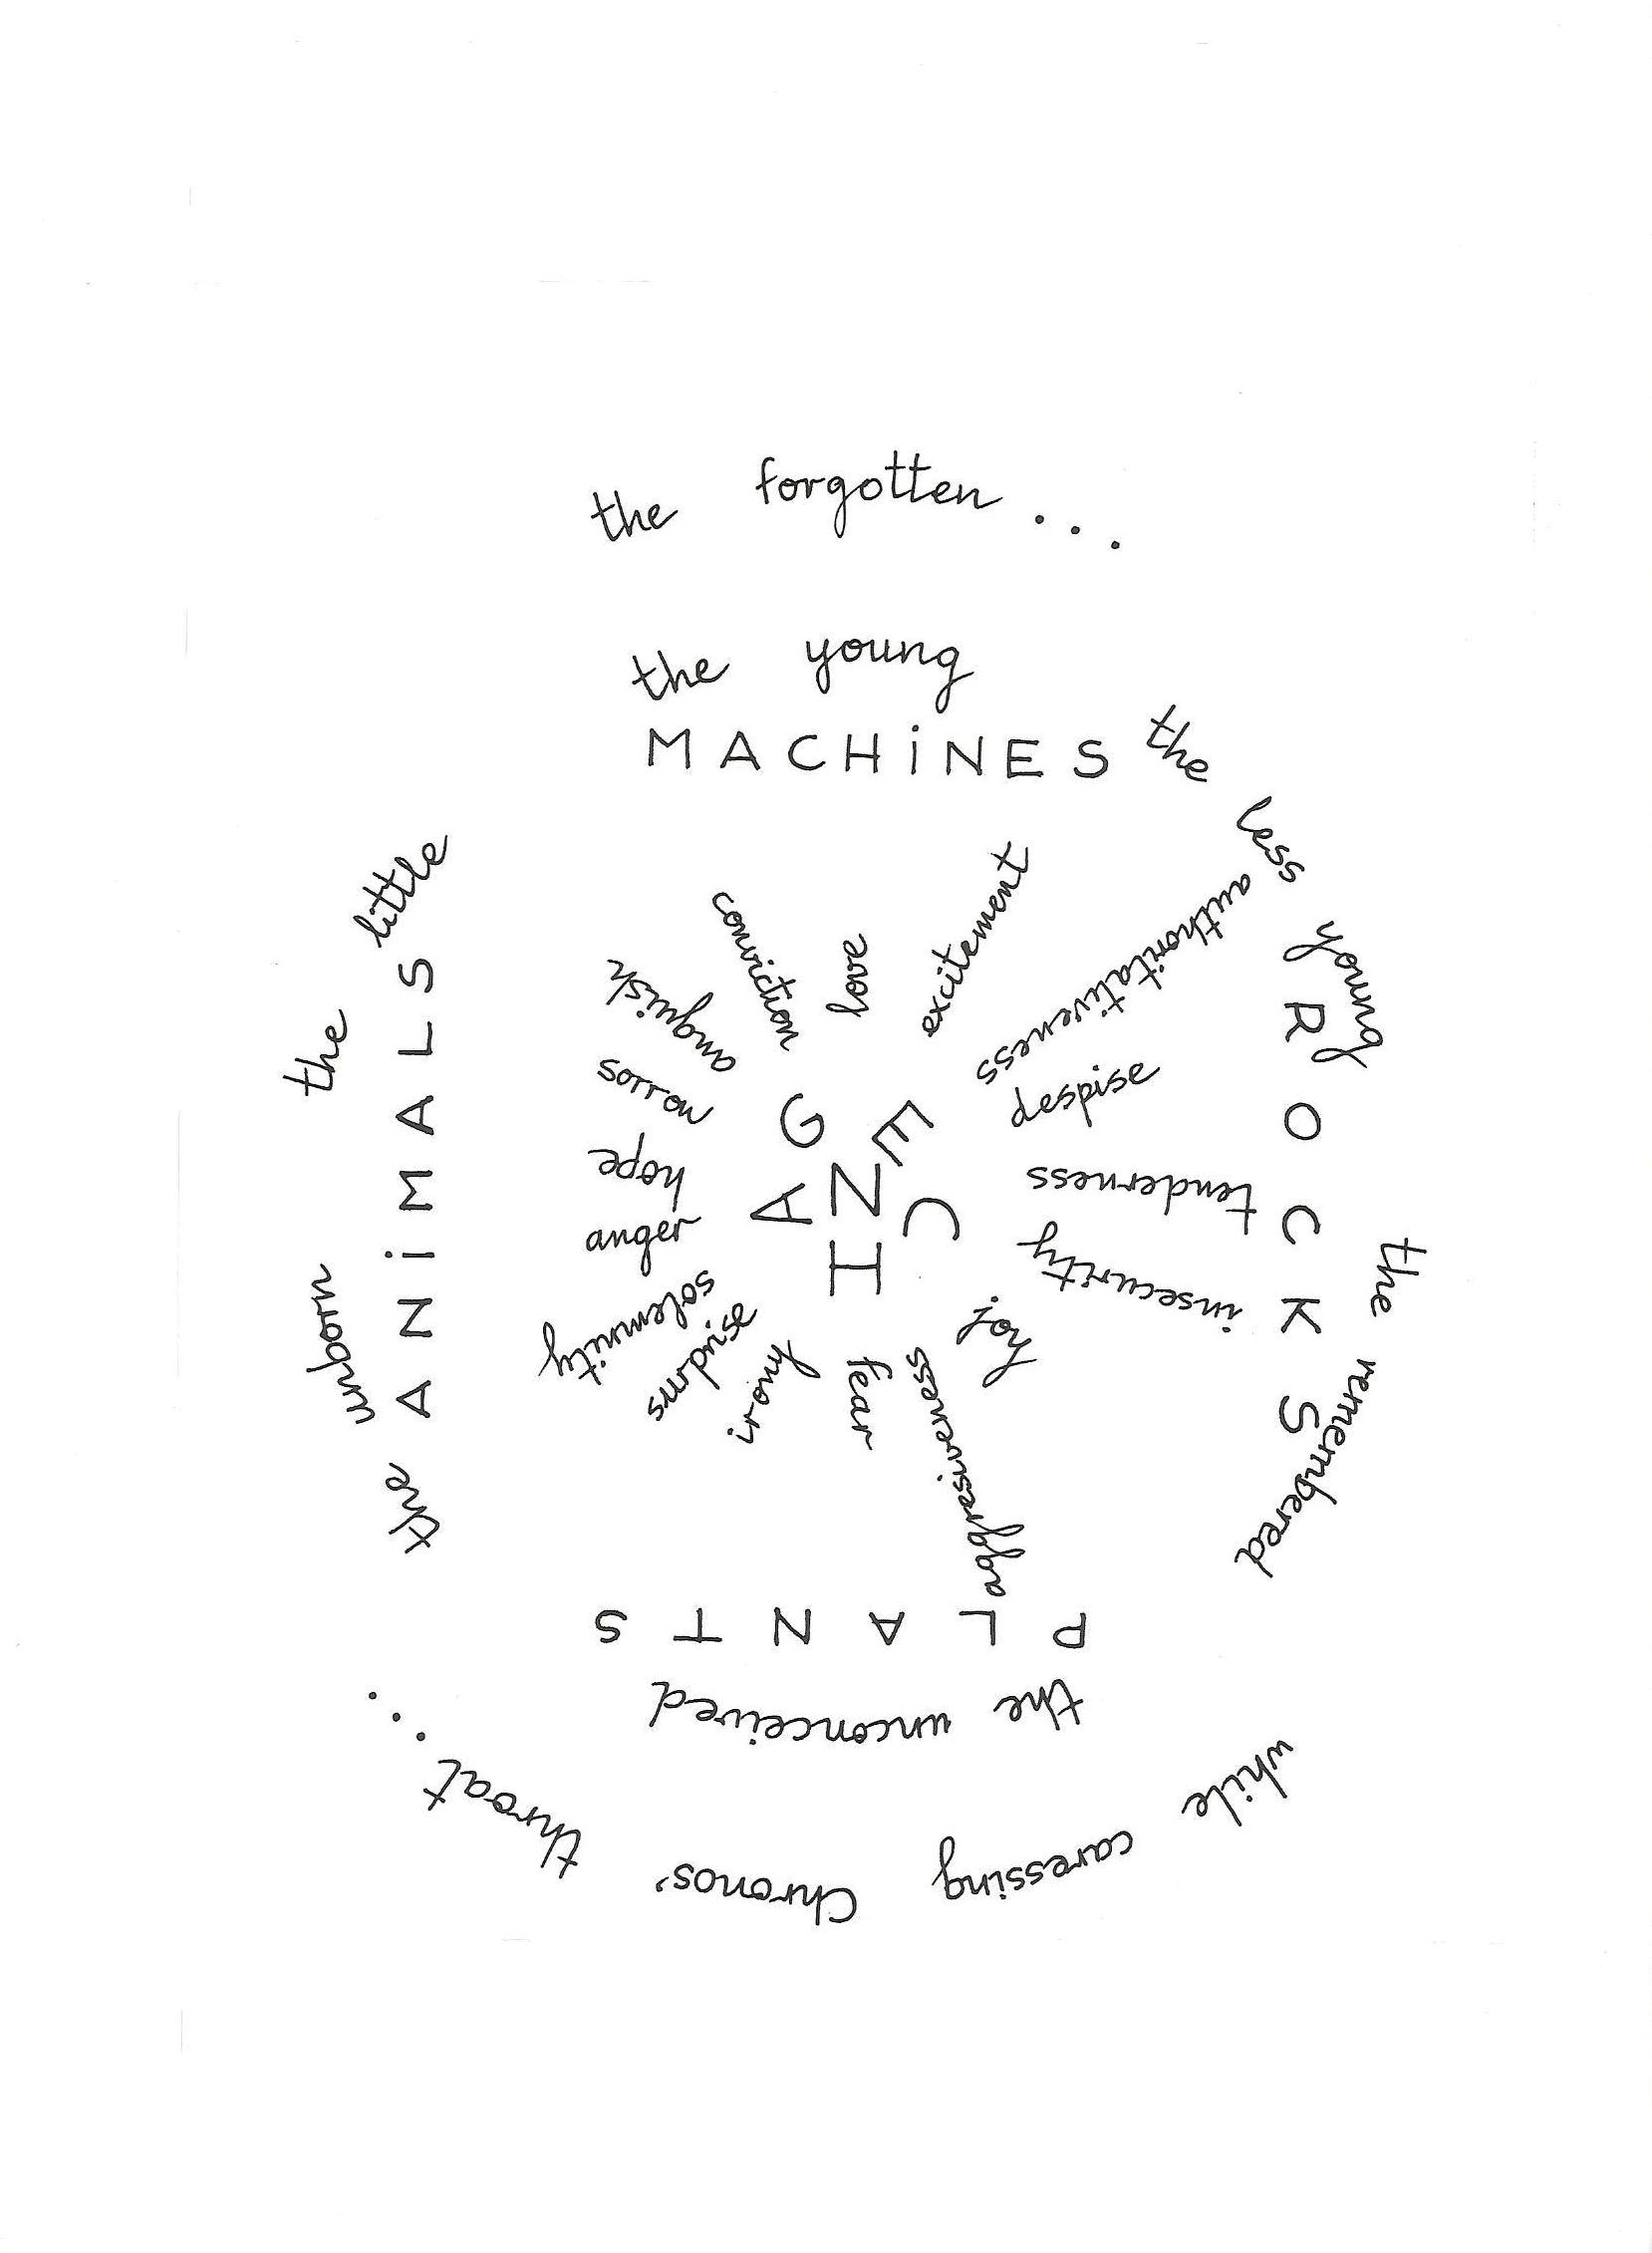 the forgotten...
the young
MACHiNES
the less young
ROCKS
the remembered
while caressing Chronos' throat...
the unconceived
PLANTS
the unborn
the little
ANiMALS
conviction
love
excitement
authoritativeness
despise
tenderness
insecurity
joy
aggressiveness
fear
irony
surprise
solemnity
anger
hope
sorrow
anguish
CHANGE